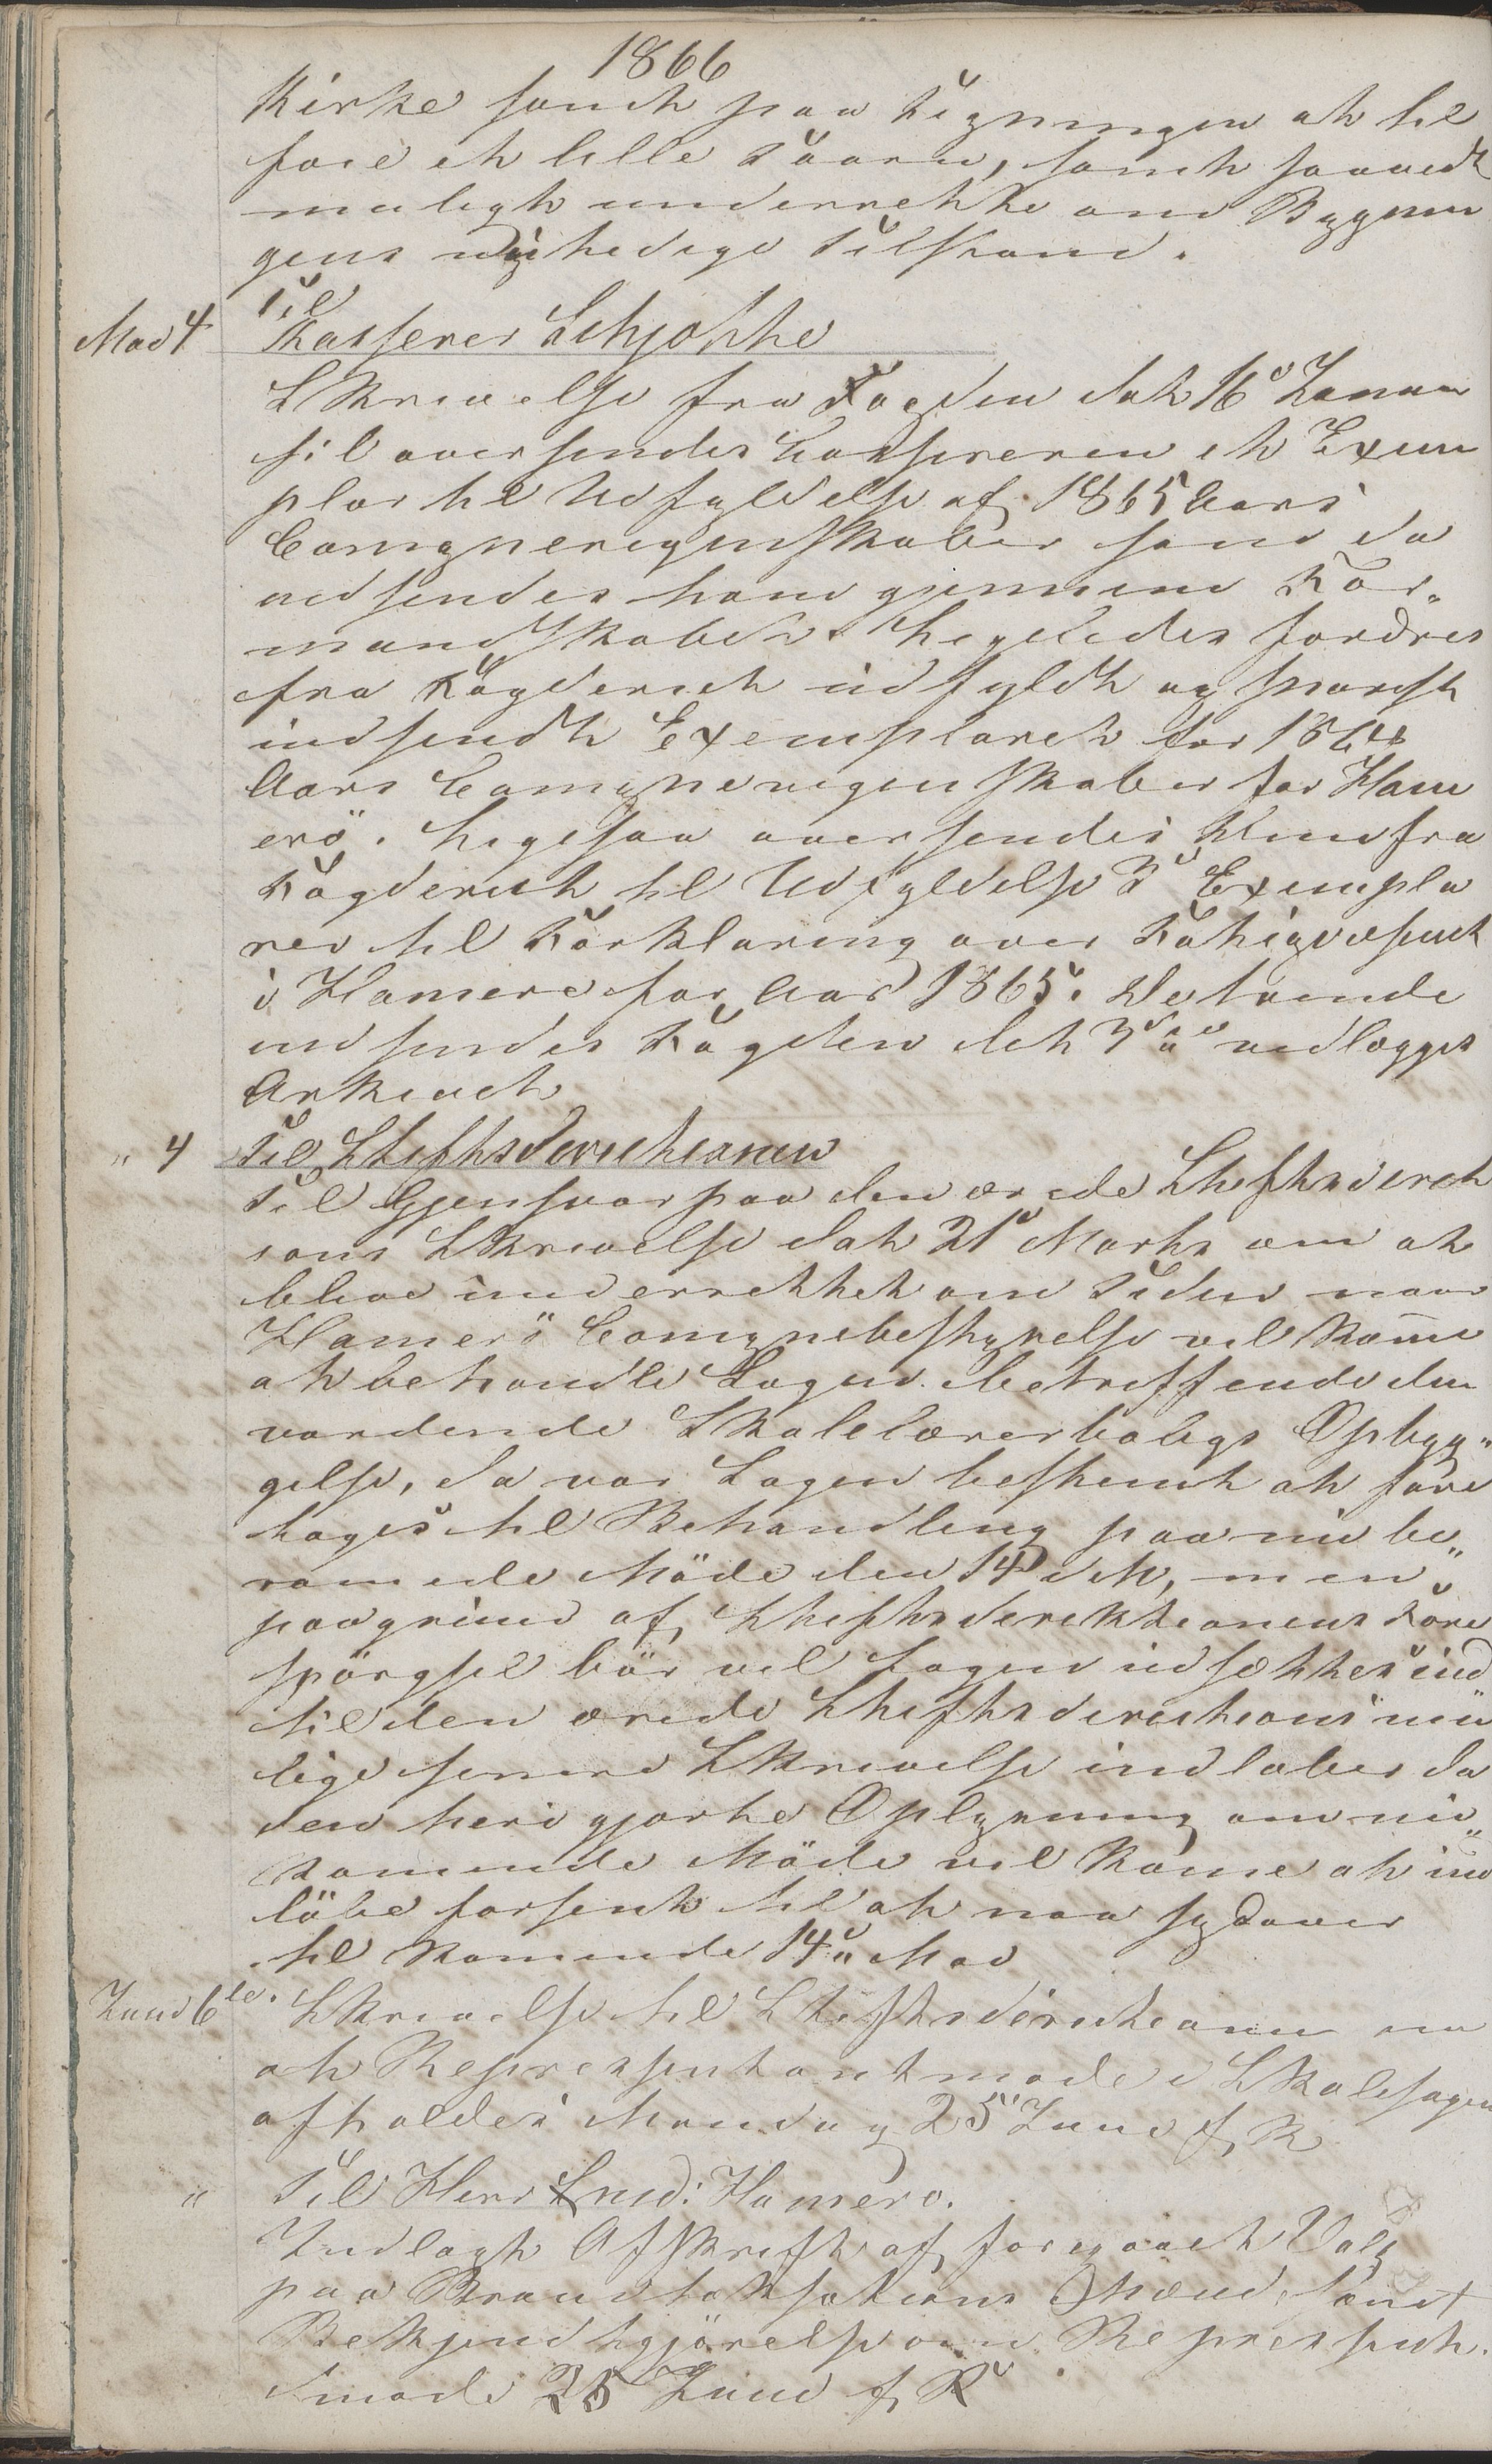 1866
Kirke samt paa Tegningen at til
føie et lille Taarn, samt saavidt
muligt underrette om Bygnin
gens nuhedige Tilstand.
Mai 4
Til
Kasserer Schjøtte
Skrivelse fra Fogden dat 16 Januar
hil oversendes Casereren et Exem
plar til Udfyldelse af 1865 Aars
Comuneregenskaber som da
udsendes ham gjennem For„
mandskabet. Ligeledes fordres
fra Fogderiet udfyldt og snarest
indsendt Exemplaret for 1864
Aars Comuneregenskaber for Ham
erö. Ligesaa oversendes ham fra
Fogderiet til Udfyldelse 3 Exempla
rer til Forklaring over Fattigvæsnet
i Hamerø for Aar 1865. De tvende
indsendes Fogden det 3die vedlægges
Arkivet
„ 4 Til Stiftsdirectionen
Til Gjensvar paa den ærede Stiftsdirect
ions Skrivelse dat 21 Marts om at
blive underrettet om Tiden naar
Hamerö Comunebestyrelse vil kome
at behandle Sagen betreffende den
vordende Skolelærerboligs Opbyg„
gelse, da var Sagen bestemt at fore
tages til Behandling paa nu be„
ramede Möde den 14 d M, men
paagrund af Stiftsdirektionens Fore
spörgsel bör vel Sagen udsættes ind
til den ærede Stiftsdirections mu
lige senere Skrivelse indløber da
den heri gjorte Oplysning om nu„
komende Möde vil kome at ind
löbe forsent til at naa sydover
til komende 14 Mai
Juni 6te. Skrivelse til Stiftsdirectionen om
at Representantmøde i Skolesagen
afholdes Mandag 25 Juni f, K
„ Til Herr Lind: Hamerø.
Indlagt Afskrift af foregaaet Valg
paa Brandtaksations Mænd samt
Bekjendtgjörelse om Represent.
møde 25 Juni f, K